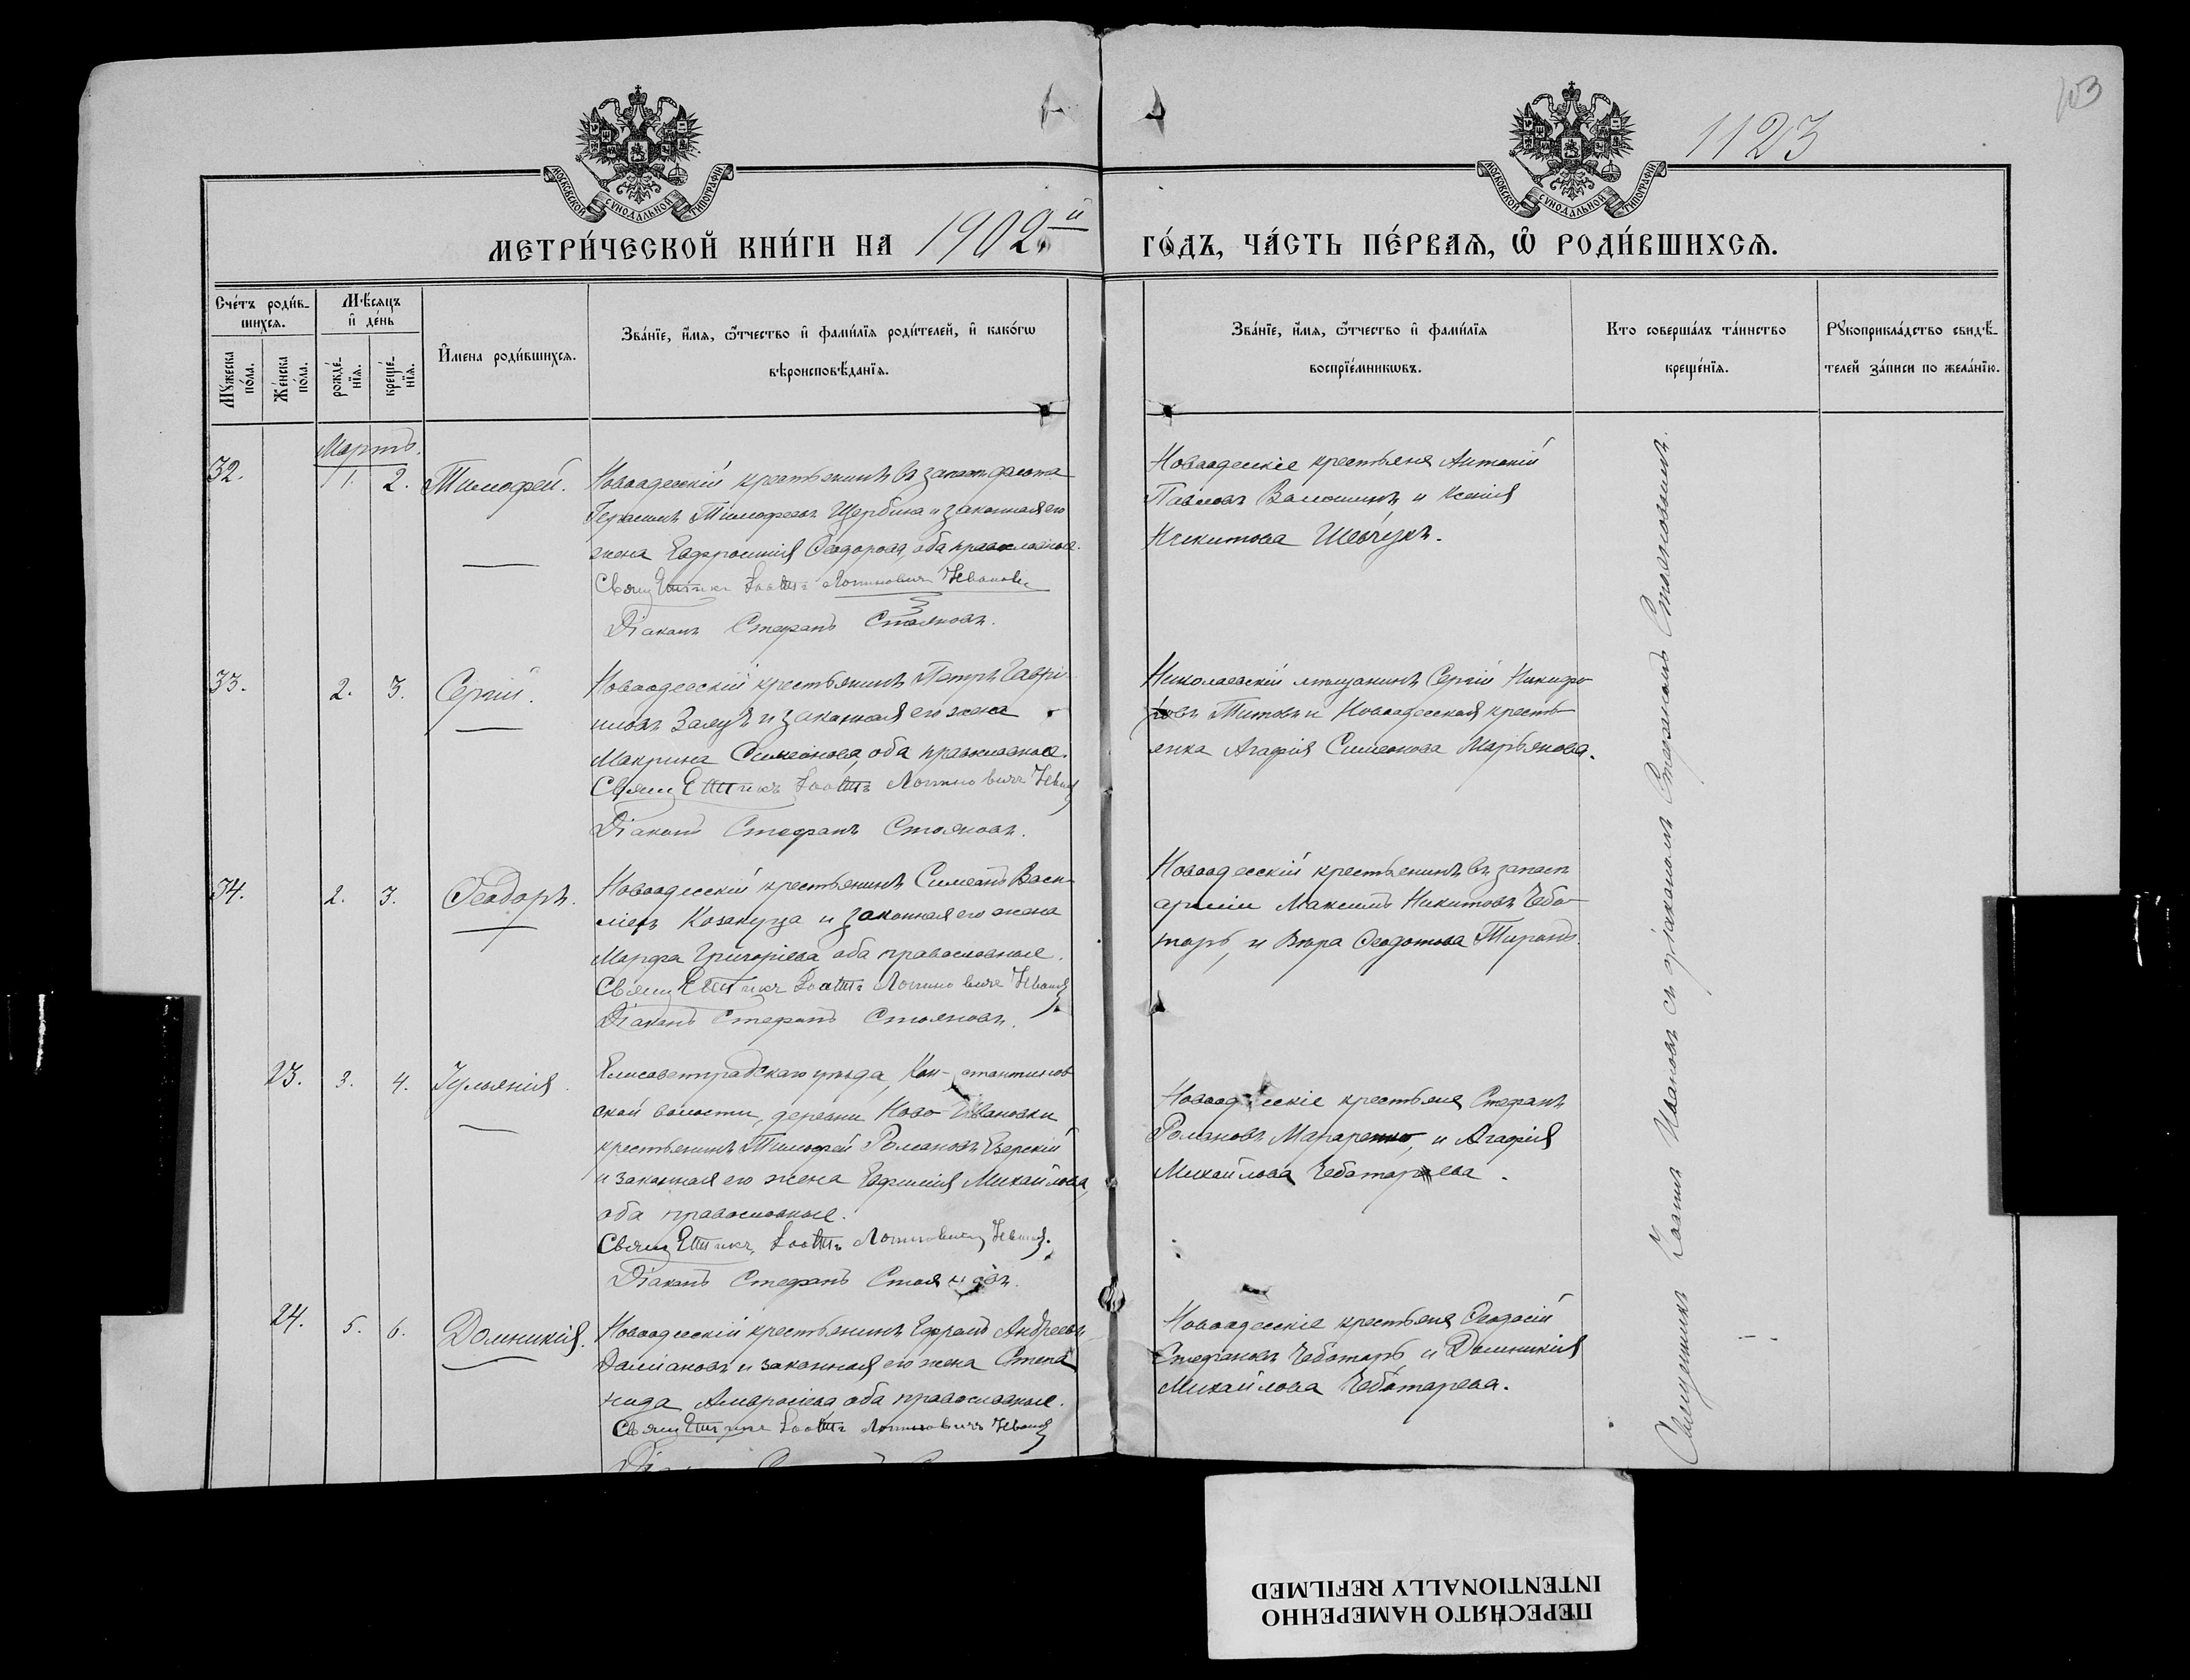 103
1123
МОСКОВСКОЙ СѴНОДАЛЬНОЙ ТИПОГРАФІИ
МОСКОВСКОЙ СѴНОДАЛЬНОЙ ТИПОГРАФІИ
МЕТРИ́ЧЕСКОЙ КНИ́ГИ НА 1902й
ГО́ДЪ, ЧА́СТЬ ПЕ́РВАѦ, Ѽ РОДИ́ВШИХСѦ.
Сче́тъ роди́в-
шихсѧ.
Мꙋ́жеска по́ла.
Же́нска по́ла.
Мѣ́сѧцъ и҆ де́нь
рожде́-нїѧ.
креще́-нїѧ.
И҆́мена роди́вшихсѧ.
Зва́нїе, и҆́мѧ, ѻ҆́тчество и҆ фами́лїѧ роди́телей, и҆ како́гѡ
вѣроисповѣ́данїѧ.
Зва́нїе, и҆́мѧ, ѻ҆́тчество и҆ фами́лїѧ
воспрїе́мникѡвъ.
Кто соверша́лъ та́инство
креще́нїѧ.
Рꙋкоприкла́дство свидѣ́-
телей за́писи по жела́нїю.
Мартъ.
32. 1. 2. Тимофей.
Новоодесскій крестьянинъ въ запасѣ флота
Герасимъ Тимофеевъ Щербина и законная его
жена Евфросинія Ѳеодорова, оба православные.
Священникъ Іоаннъ Логиновичъ Ивановъ
Діаконъ Стефанъ Стояновъ.
Новоодесскіе крестьяне Антоній
Павловъ Волошинъ и Ксенія
Никитова Шевчукъ.
33. 2. 3. Сергій.
Новоодесскій крестьянинъ Петръ Гаврі-
иловъ Заяцъ и законная его жена
Макрина Симеонова, оба православные.
Священникъ Іоаннъ Логиновичъ Ивановъ
Діаконъ Стефанъ Стояновъ.
Николаевскій мѣщанинъ Сергій Никифо-
ровъ Титовъ и Новоодесская кресть-
янка Агафія Симеонова Марьянова.
34. 2. 3. Ѳеодоръ.
Новоодесскій крестьянинъ Симеонъ Васи-
ліевъ Козакуца и законная его жена
Марфа Григоріева оба православные.
Священникъ Іоаннъ Логиновичъ Ивановъ
Діаконъ Стефанъ Стояновъ.
Новоодесскій крестьянинъ въ запасѣ
арміи Максимъ Никитовъ Чебо-
тарь, и Вѣра Ѳеодотова
23. 3. 4. Іуліанія.
Елисаветградскаго уѣзда, Константинов
ской волости, деревни Ново-Ивановки
крестьянинъ Тимофей Романовъ Езерскій
и законная его жена Евфимія Михайлова,
оба православные.
Священникъ Іоаннъ Логиновичъ Ивановъ.
Діаконъ Стефанъ Стояновъ.
Новоодесскіе крестьяне Стефанъ
Романовъ Макаренко, и Агафія
Михайлова Чеботарева.
24. 5. 6. Домникія.
Новоодесскій крестьянинъ Ефремъ Андреевъ
Даміановъ и законная его жена Степа
нида Амвросіева оба православные.
Священникъ Іоаннъ Логиновичъ Ивановъ
Новоодесскіе крестьяне Ѳеодосій
Стефановъ Чеботарь, и Домникія
Михайлова Чеботарева.
Священникъ Іоаннъ Ивановъ съ діакономъ Стефаномъ Стояновымъ.
ПЕРЕСНЯТО НАМЕРЕННО
INTENTIONALLY REFILMED